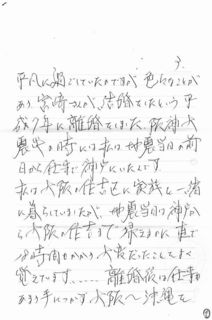 う。
平凡に過ごしていたのですが 色々なことが
あり 宮崎さんが、結婚していたという 平
成7年に離婚をしました。阪神大
震災の時には私は地震当日の前
日から仕事で神戸にいたんです。
私は大阪の住吉区に家族と一緒
に暮らしていましたが、地震当日は神戸か
ら大阪の住吉まで帰るのに車で
18時間もかかり大変だったことをよく
覚えています、…… 離婚後は仕事も
あまり手につかず大阪へ沖縄を